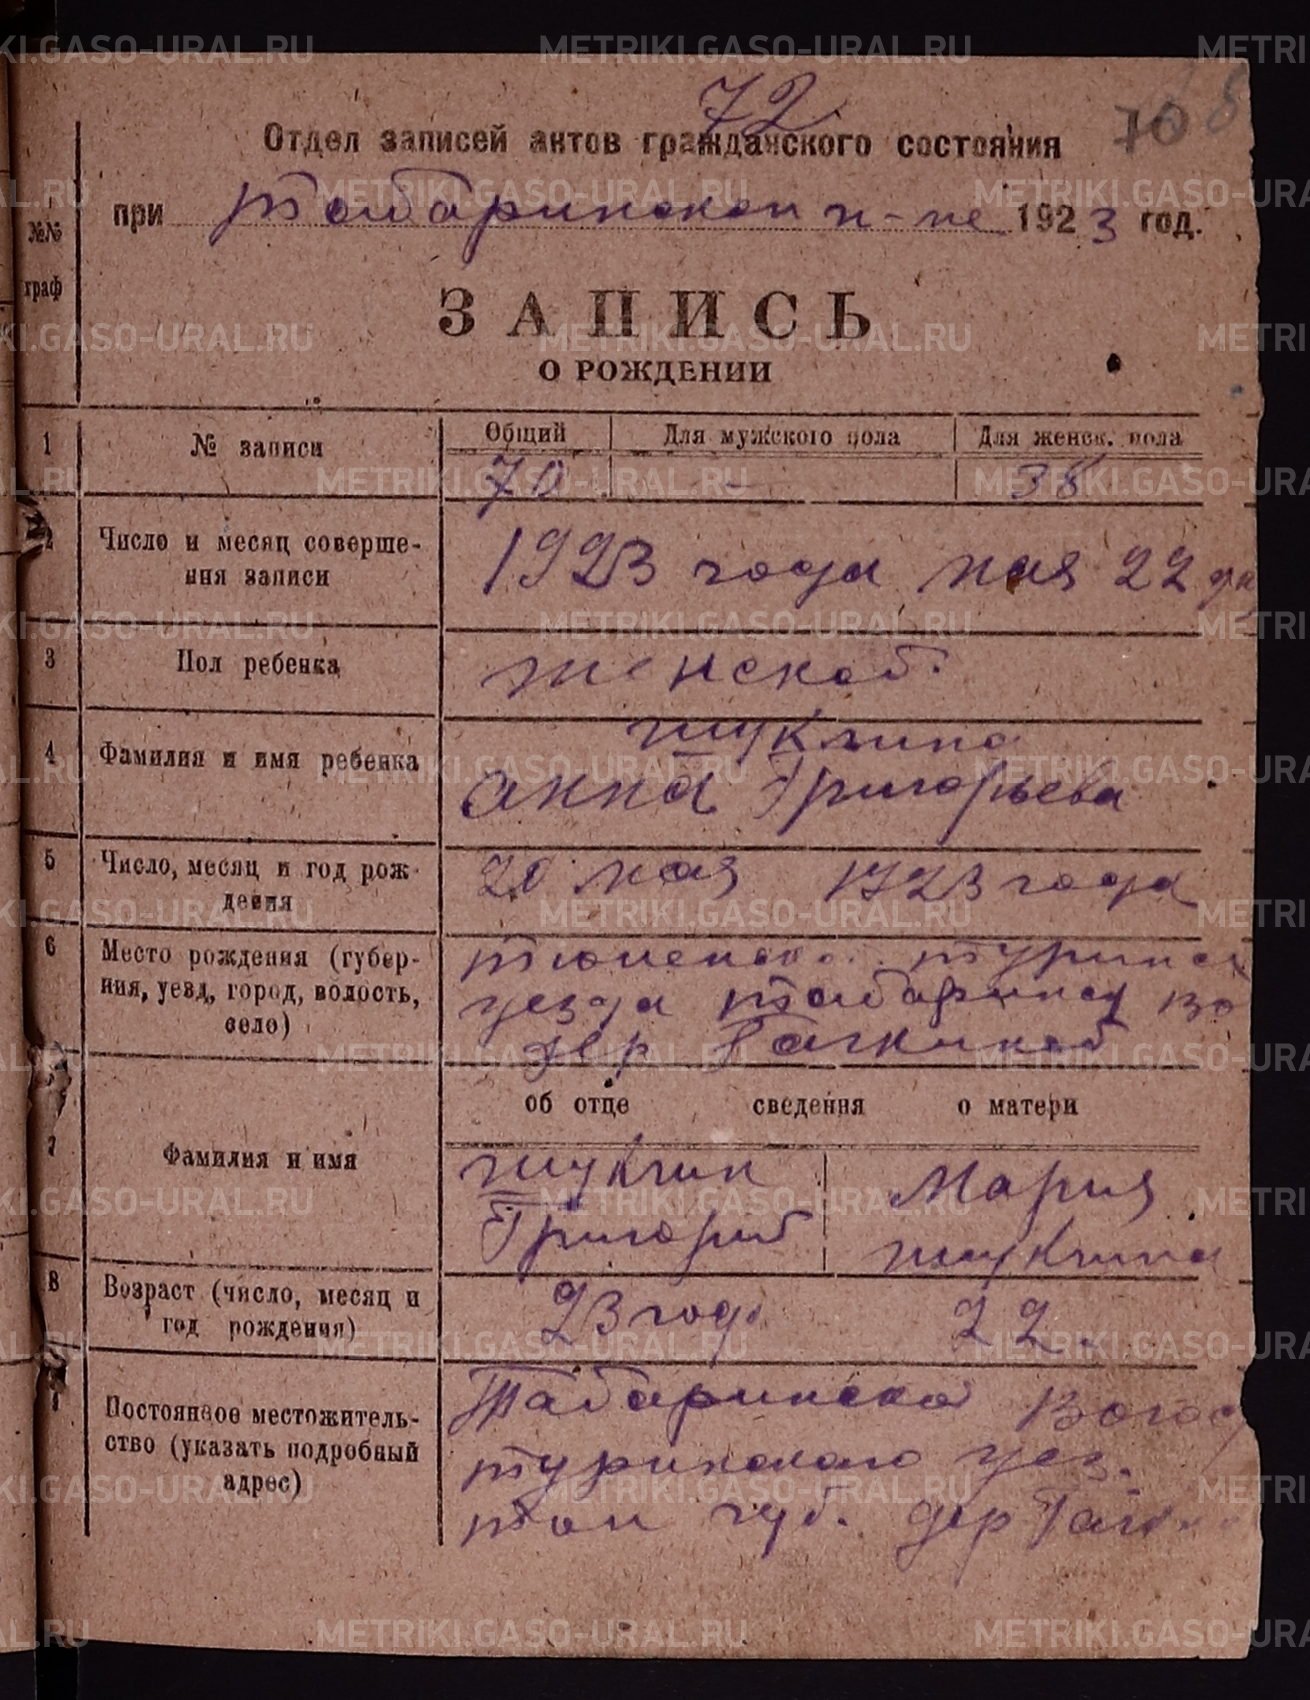 72
706
Отдел записей актов гражданского состояния
при Табаринском 1923 год.
№№ граф
ЗАПИСЬ
О РОЖДЕНИИ
1 № записи Общий Для мужского пола Для женск. пола
70 - 38
2 Число и месяц соверше-
ния записи
1923 года мая 22 дн
3 Пол ребенка женской
4 Фамилия и имя ребенка
Шуклина
Анна Григорьева
5 Число, месяц и год рож-
дения
20 мая 1923 года
6 Место рождения (губер-
ния, уезд, город, волость,
село)
Тюменско Туринск
уезда Табаринск во
дер
об отце сведения о матери
7 Фамилия и имя
Шуклин Мария
Григорий Шуклина
8 Возраст (число, месяц и
год рождения)
23 год 22.
Постоянное местожитель-
ство (указать подробный
адрес)
Табаринско Волос
Туринского уез.
Тюм губ. дер
METRIKI.GASO-URAL.RU